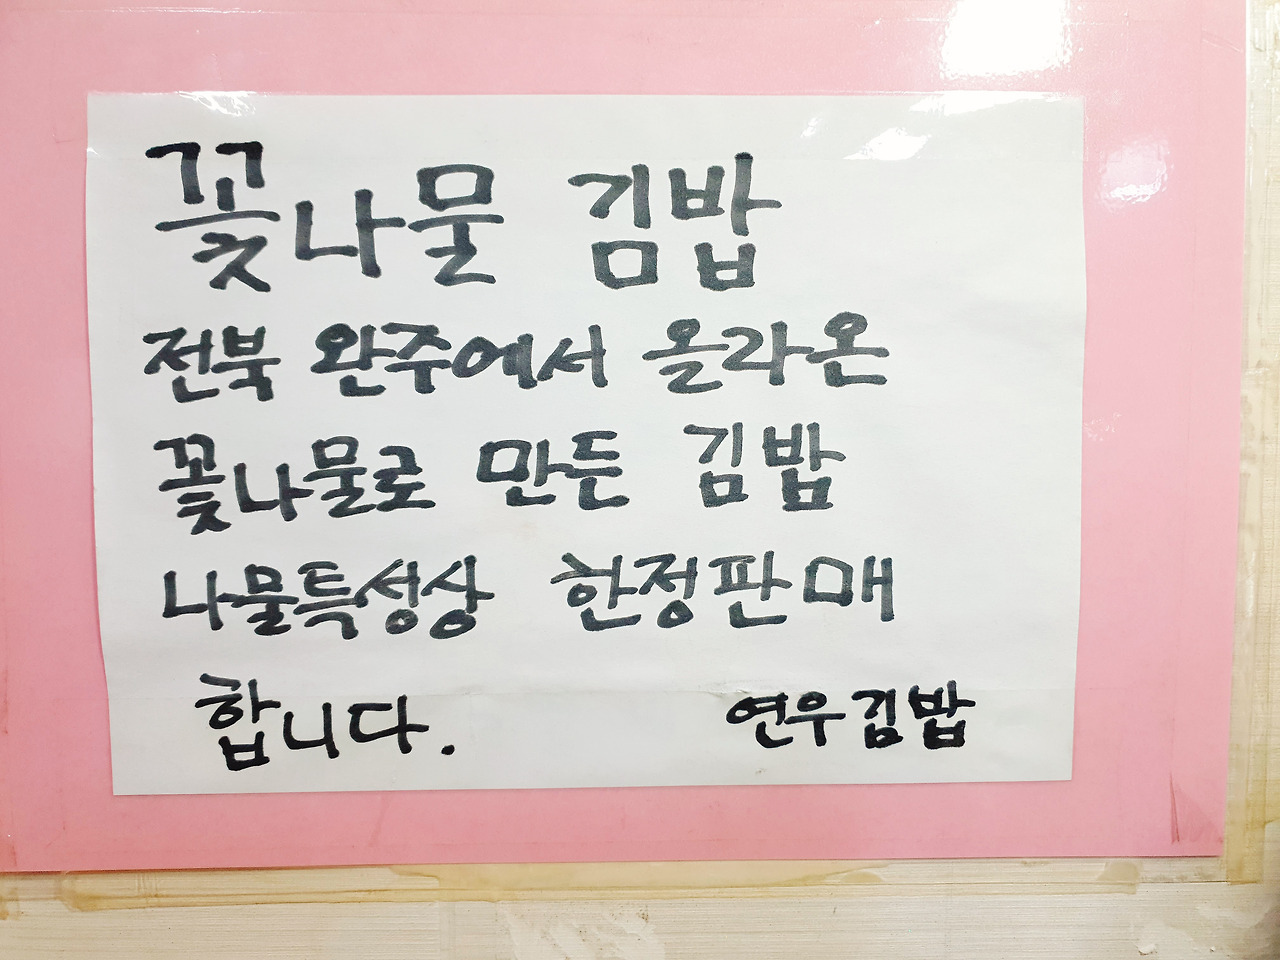 꽃나물 김밥
전북 완주에서 올라온
꽃나물로 만든 김밥
나물특성상 한정판매
합니다. 연우김밥